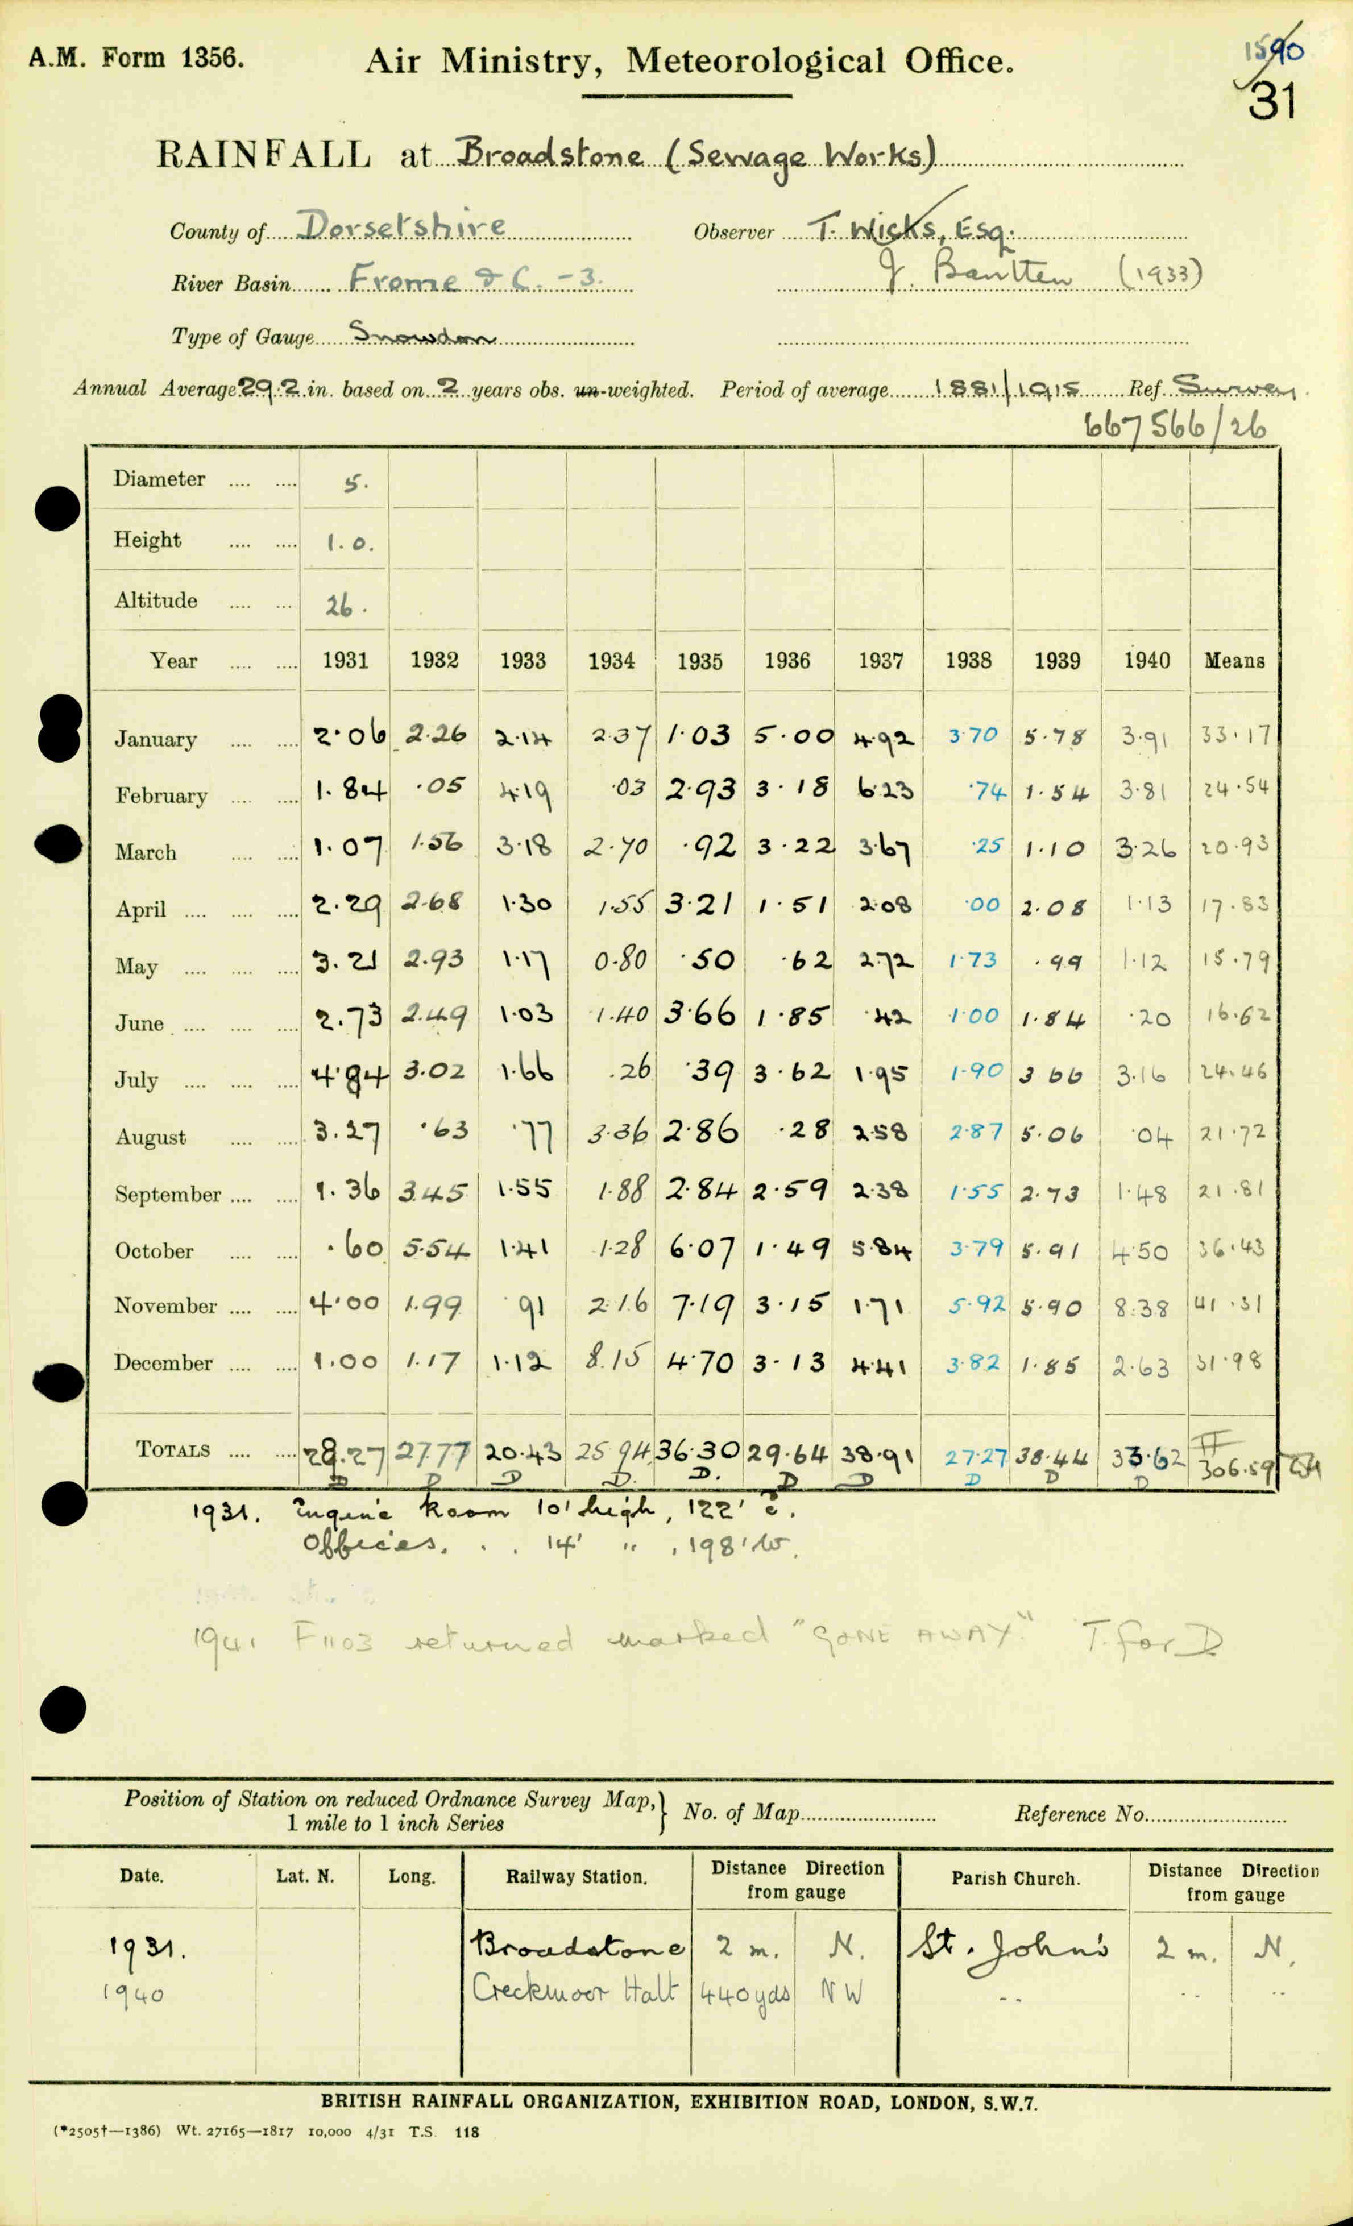 A.M. Form 1356. Air Ministry, Meteorological Office. 1590
31
RAINFALL at Broadstone (Sewage Works)
County of Dorsetshire Observer T. Wicks, Esq.
River Basin Frome & C. -3. J. (1933)
Type of Gauge Snowdon
Annual Average 29.2 in. based on 2 years obs. un-weighted. Period of average 1881/1915 Ref. Survey.
667566/26
Diameter .... .... 5.
Height .... .... 1.0.
Altitude .... .... 26.
Year .... .... 1931 1932 1933 1934 1935 1936 1937 1938 1939 1940 Means
January .... .... 2.06 2.26 2.14 2.37 1.03 5.00 4.92 3.70 5.78 3.91 33.17
February .... .... 1.84 .05 4.19 .03 2.93 3.18 6.23 .74 1.54 3.81 24.54
March .... .... 1.07 1.56 3.18 2.70 .92 3.22 3.67 .25 1.10 3.26 20.93
April .... .... .... 2.29 2.68 1.30 1.55 3.21 1.51 2.08 .00 2.08 1.13 17.83
May .... .... .... 3.21 2.93 1.17 0.80 .50 .62 2.72 1.73 .99 1.12 15.79
June .... .... .... 2.73 2.49 1.03 1.40 3.66 1.85 .42 1.00 1.84 .20 16.62
July .... .... .... 4.84 3.02 1.66 .26 .39 3.62 1.95 1.90 3 66 3.16 24.46
August .... .... 3.27 .63 .77 3.36 2.86 .28 2.58 2.87 5.06 .04 21.72
September .... .... 1.36 3.45 1.55 1.88 2.84 2.59 2.38 1.55 2.73 1.48 21.81
October .... .... .60 5.54 1.41 1.28 6.07 1.49 5.84 3.79 5.91 4.50 36.43
November .... .... 4.00 1.99 .91 2.16 7.19 3.15 1.71 5.92 5.90 8.38 41.31
December .... .... 1.00 1.17 1.12 8.15 4.70 3.13 4.41 3.82 1.85 2.63 31.98
TOTALS .... .... 28.27 27.77 20.43 25.94 36.30 29.64 38.91 27.27 38.44 33.62 306.59
D D D D. D. D D D D D
1931. Engine Room 10' high, 122' E.
Offices. . . 14' " , 198' W.
1941 F1103 returned marked "GONE AWAY" T. for D
Position of Station on reduced Ordnance Survey Map,} No. of Map Reference No.
1 mile to 1 inch Series
Date. Lat. N. Long. Railway Station. Distance Direction from gauge Parish Church. Distance Direction from gauge
1931. Broadstone 2 m. N. St. John's 2 m. N.
1940 Creekmoor Halt 440 yds NW .. .. ..
BRITISH RAINFALL ORGANIZATION, EXHIBITION ROAD, LONDON, S.W.7.
(*2505†—1386) Wt. 27165—1817 10,000 4/31 T.S. 118